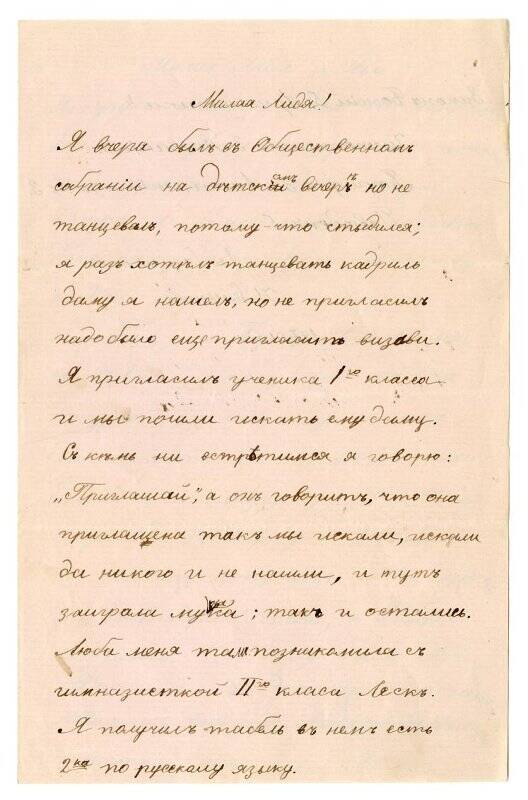 Милая Лидя!
Я вчера былъ въ Общественномъ
собраніи на дѣтскій вечеръ но не
танцевалъ, потому-что стыдился;
я разъ хотѣлъ танцевать кадриль
даму я нашелъ, но не пригласилъ
надо было еще пригласить визави.
Я пригласилъ ученика 1го класса
и мы пошли искать ему даму.
Съ кѣмъ ни встрѣтимся я говорю:
„Приглашай", а онъ говоритъ, что она
приглашена такъ мы искали, искали
да никого и не нашли, и тутъ
заиграла музыка; такъ и остались.
Люба меня тамъ познакомила съ
гимназисткой IIго класа Лескъ.
Я получилъ табель въ немъ есть
2ка по русскому языку.